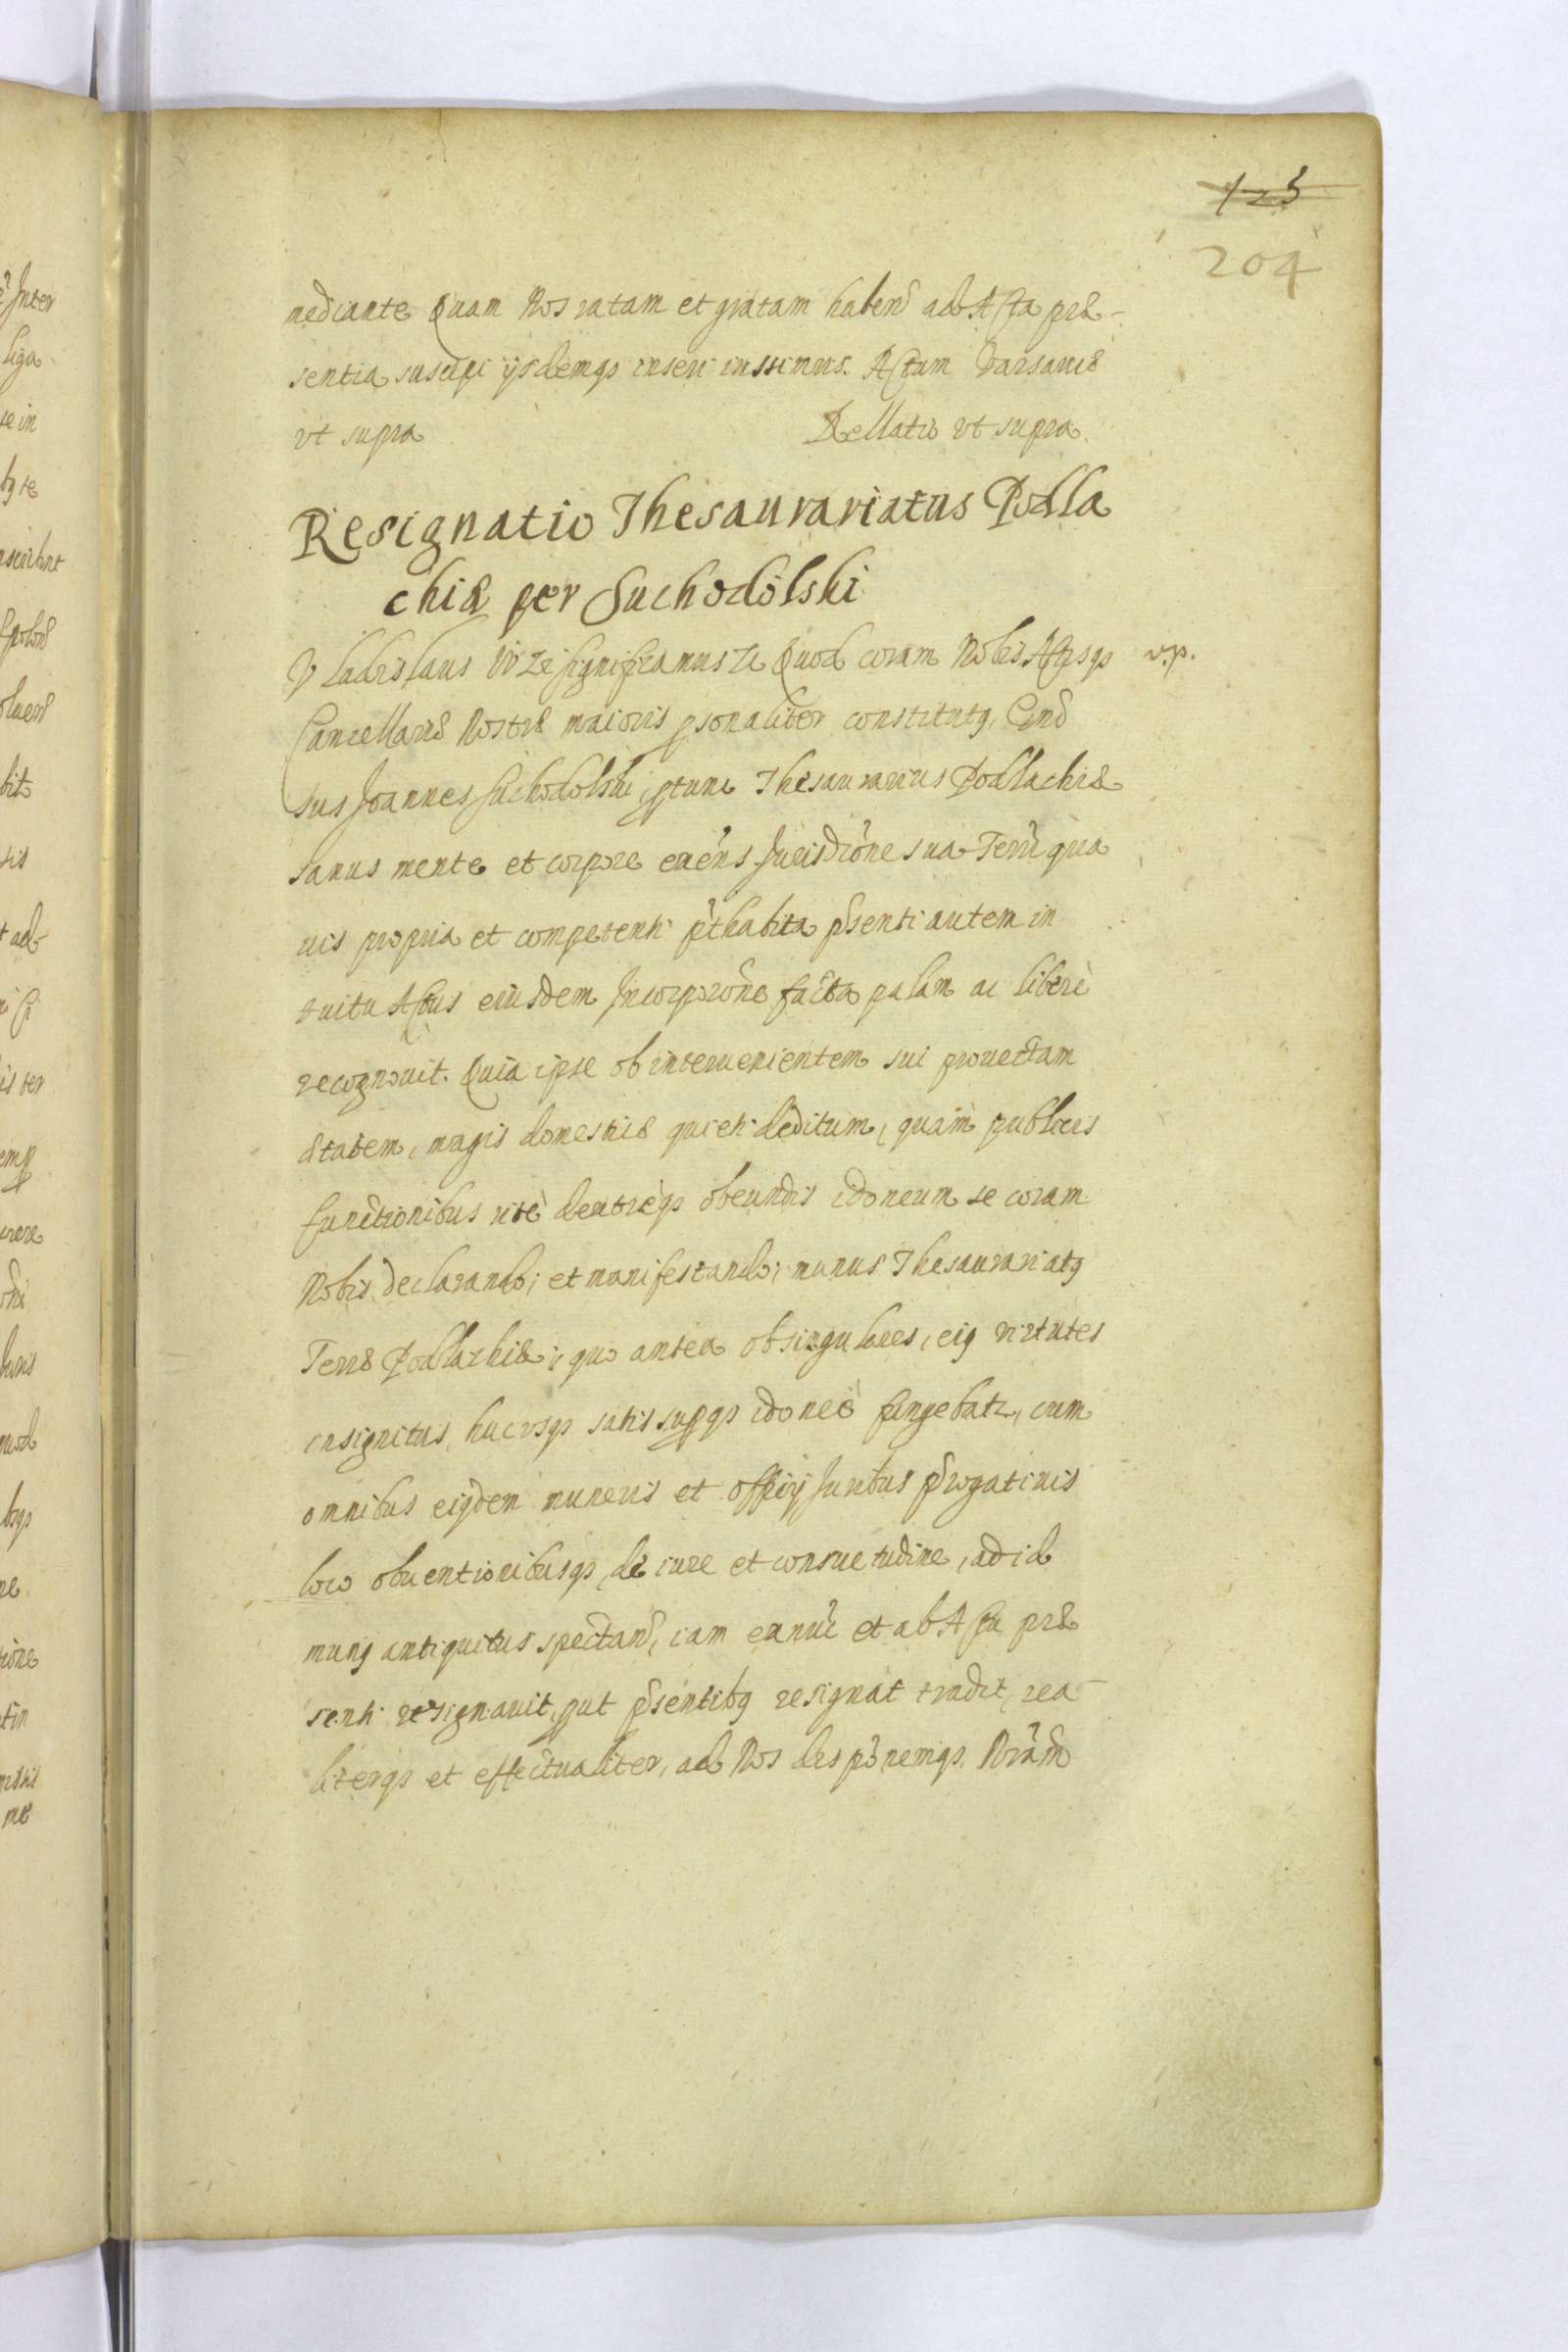 123
204
mediante Quam Nos ratam et gratam habend ad Acta præ-
sentia suscipi ijsdemq inseri iussimus. Actum Varsaviæ
vt supra Rellatio vt supra
Resignatio Thesaurariatus Podla
chiæ per Suchodolski
Vladislaus IV ze significamus ze Quod coram Nobis Actisq v.p.
Cancellariæ Nostræ maioris psonaliter constitutq, Gnd
sus Joannes Suchodolski, ptunc Thesaurarius Podlachiæ
sanus mente et corpore exens Jurisdicone sua Terri qua
vis propria et competenti pthabita psenti autem in
tuitu Actus eiusdem Incorporone facta palam ac liberè
recognouit. Quia ipse ob interuenientem sui prouectam
ætatem, magis domesticæ quieti deditum, quàm publicis
functionibus ritè dextrèq obeundis idoneum se coram
Nobis declarando, et manifestando, munus Thesaurariatq
Terræ Podlachiæ, quo antea ob singulares, eiq virtutes
insignitus, hucvsq satis supq idoneè fungebatr, cum
omnibus eiqdem muneris et officij Juribus progatiuis
loco obuentionibusq, de iure et consuetudine, ad id
munq antiquitus spectand, iam exnuc et ab Actu præ
senti resignauit, put psentibq resignat tradit, rea-
literq et effectualiter, ad Nos dispõnemq Nram